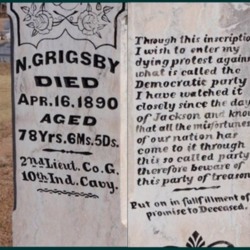 N. GRIGSBY
DIED
APR. 16. 1890
AGED
78 Yrs. 6 Ms. 5 Ds.
2nd Lieut. Co. G.
10th Ind. Cavy.
Through this inscription
I wish to enter my
dying protest against
what is called the
Democratic party
I have watched it
closely since the days
of Jackson and know
that all the misfortunes
of our nation has
come to it through
this so called party
therefore beware of
this party of treason
Put on in fulfillment of
promise to Deceased.